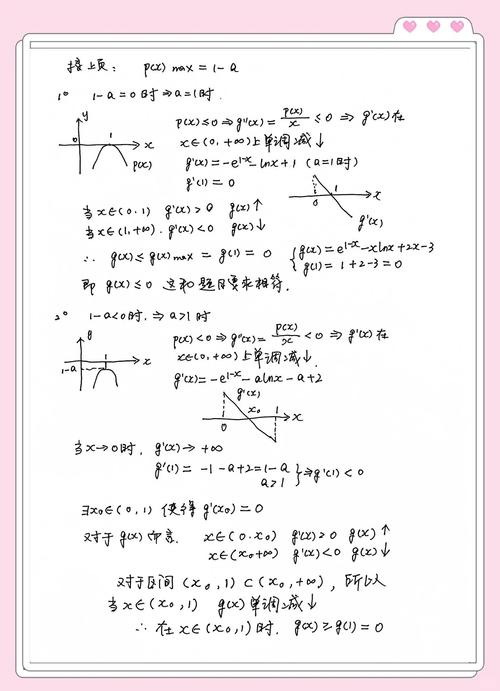 接上页: p(x) max = 1-a
1° 1-a=0时 ⇒ a=1时.
y
0 1 x
p(x)
p(x)≤0 ⇒ g''(x) = p(x)/x ≤ 0 ⇒ g'(x)在
x∈(0,+∞)上单调减↓
g'(x) = -e^{1-x} - lnx + 1 (a=1时)
g'(1) = 0
0 1 x
g'(x)
当x∈(0.1) g'(x)>0 g(x)↑
当x∈(1,+∞). g'(x)<0 g(x)↓
∴ g(x) ≤ g(x)max = g(1) = 0
{ g(x) = e^{1-x} - xlnx + 2x - 3
g(1) = 1+2-3 = 0
即 g(x)≤0 这和题目要求相符.
2° 1-a<0时, ⇒ a>1时
y
1 x
1-a
p(x)<0 ⇒ g''(x) = p(x)/x < 0 ⇒ g'(x)在
x∈(0,+∞)上单调减↓.
g'(x) = -e^{1-x} - alnx - a + 2
g'(x)
0 x₀ 1 x
当x→0时, g'(x) → +∞
g'(1) = -1-a+2 = 1-a
a>1 } ⇒ g'(1)<0
∃x₀∈(0,1) 使得 g'(x₀) = 0
对于g(x)而言. x∈(0.x₀) g'(x)>0 g(x)↑
x∈(x₀+∞) g'(x)<0 g(x)↓
对于区间 (x₀,1) ⊂ (x₀,+∞), 所以
当x∈(x₀,1) g(x)单调减↓
∴ 在x∈(x₀,1)时. g(x) ≥ g(1) = 0